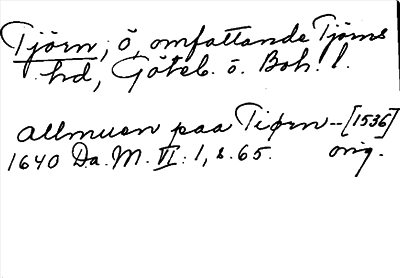 Tjörn, ö, omfattande Tjörns
hd, Göteb. o. Boh. l.
allmuen paa Tiørn -- [1536]
1640 Da. M. VI: 1, s. 65. orig.